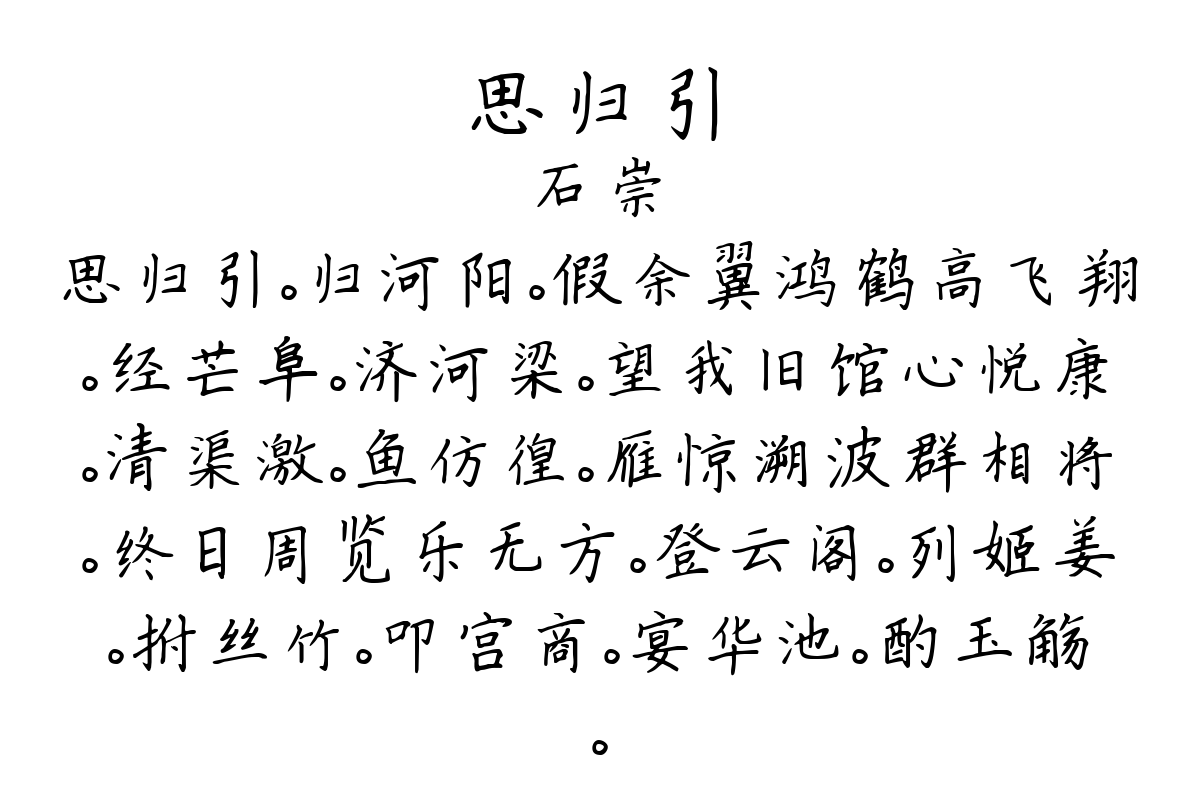 思归引
石崇
思归引。归河阳。假余翼鸿鹤高飞翔
。经芒阜。济河梁。望我旧馆心悦康
。清渠激。鱼仿徨。雁惊溯波群相将
。终日周览乐无方。登云阁。列姬姜
。拊丝竹。叩宫商。宴华池。酌玉觞
。